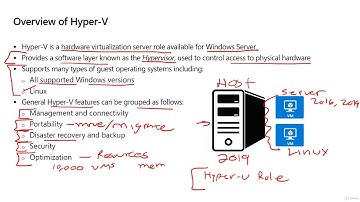 Overview of Hyper-V
• Hyper-V is a hardware virtualization server role available for Windows Server
• Provides a software layer known as the Hypervisor, used to control access to physical hardware
• Supports many types of guest operating systems including:
o All supported Windows versions
o Linux
• General Hyper-V features can be grouped as follows:
o Management and connectivity
o Portability – move/migrate
o Disaster recovery and backup
o Security
o Optimization – Resources
10,000 VMs mem
HOST
2019
Server
2016, 2019
VM
VM
Linux
Hyper-V Role